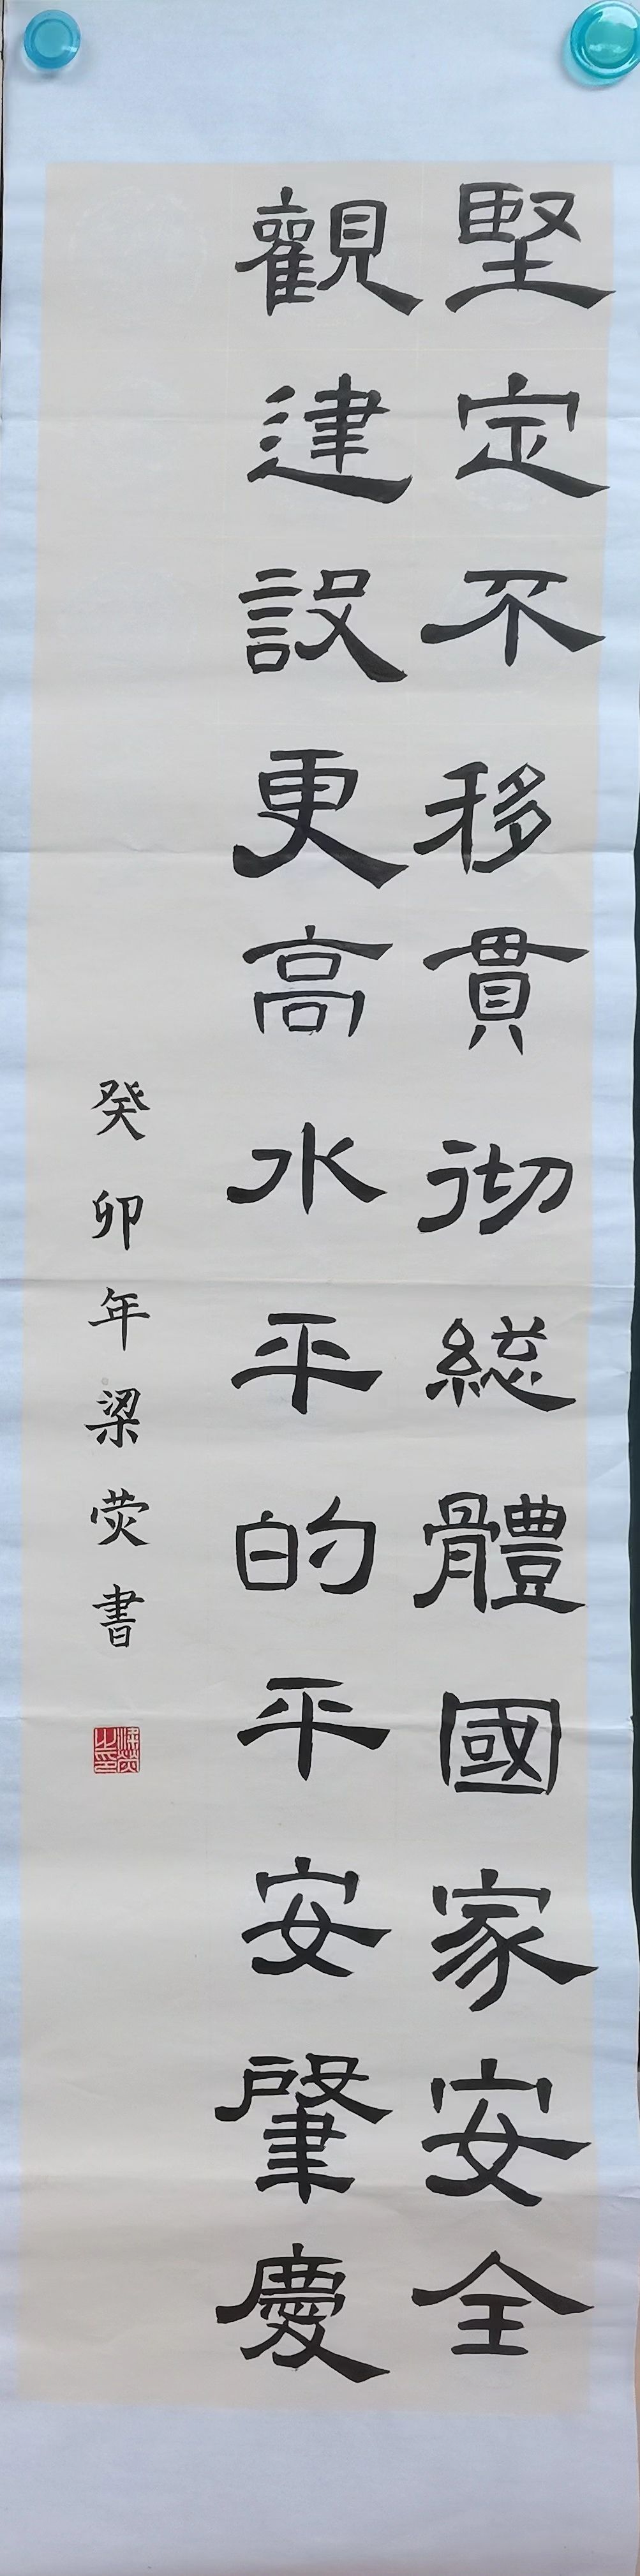 堅定不移貫彻総體國家安全
觀建設更高水平的平安肇慶
癸卯年梁荧書